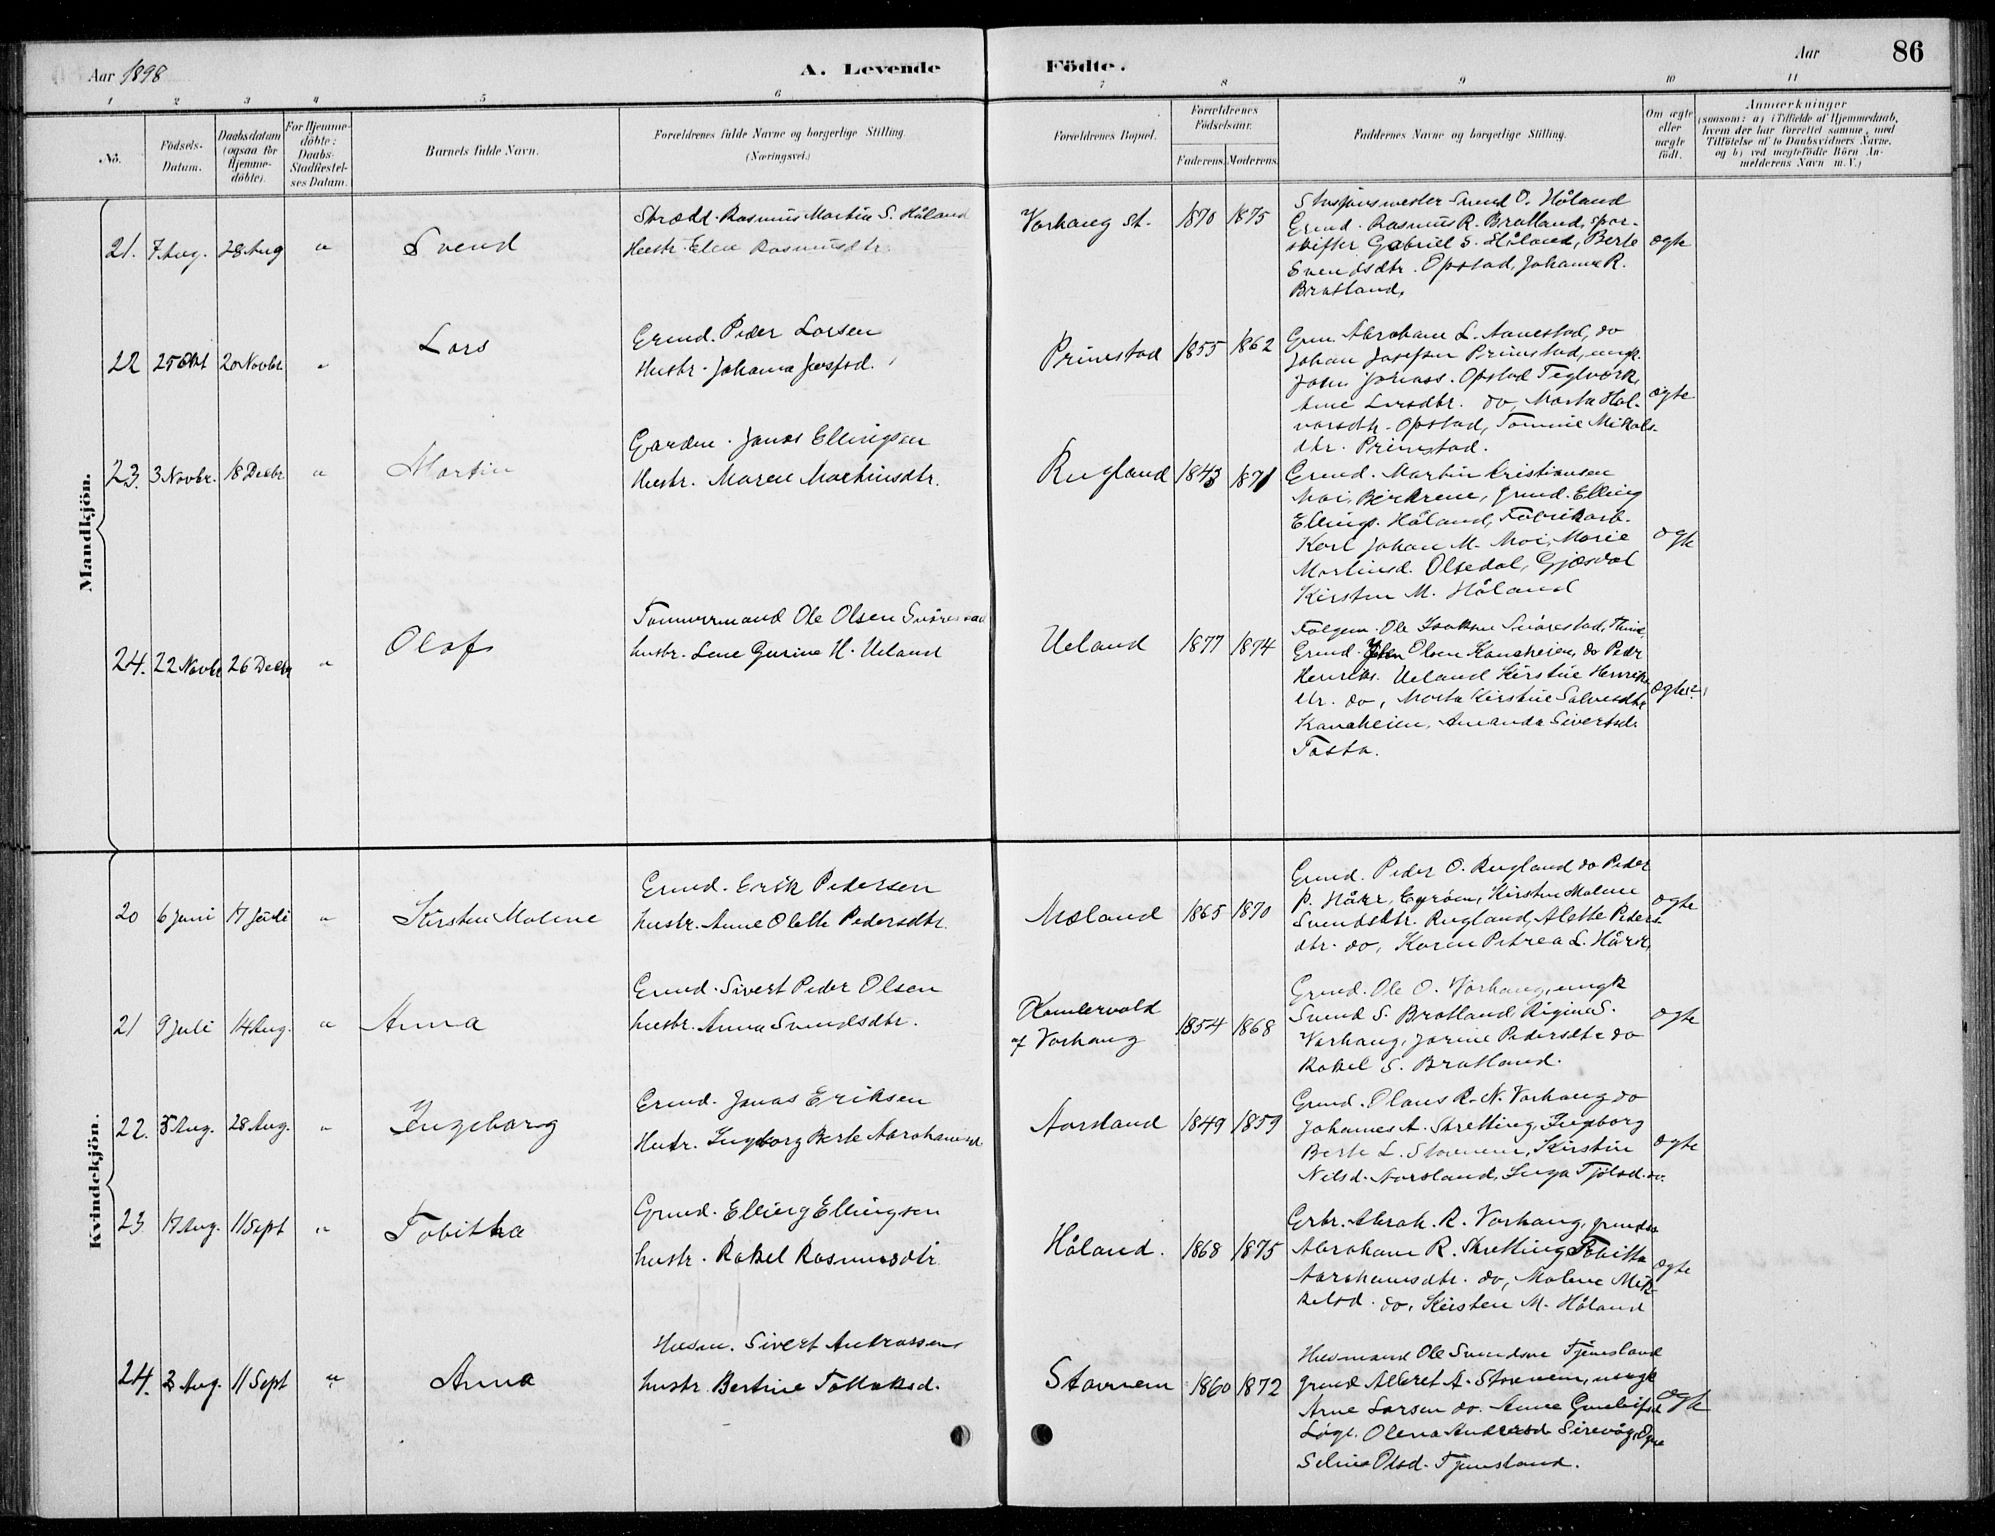 Aar 1898
A. Levende
Födte.
Aar
86
1 2 3 4 5 6 7 8 9 10 11
No.
Födsels-Datum.
Daabsdatum (ogsaa for Hjemme-döbte).
For Hjemme-döbte: Daabs-Stadfæstel-ses Datum.
Barnets fulde Navn.
Forældrenes fulde Navne og borgerlige Stilling. (Næringsvei.)
Forældrenes Bopæl.
Forældrenes Födselsaar.
Faderens. Moderens.
Faddernes Navne og borgerlige Stilling.
Om ægte eller uægte födt.
Anmærkninger
(saasom: a) i Tilfælde af Hjemmedaab, hvem der har forrettet samme, med Tilföielse af to Daabsvidners Navne, og b) ved uægtefödte Börn An-melderens Navn m. V.)
Mandkjön.
21. 7 Aug. 28 Aug " Svend
Skrædd. Rasmus Martin S. Håland
Hustr. Elen Rasmusdtr.
Varhaug st. 1870 1875
Svend O. Håland
Grmd. Rasmus R. Bratland, spor-
skifter Gabriel S. Håland, Berte
Svendsdtr. Opstad, Johanne R.
Bratland.
ægte
22 25 Okt 20 Novbr " Lars
Grmd. Peder Larsen
Hustr. Johanna Josefsd.
Primstad 1855 1862
Grm. Abraham L. Aanestad, do
Johan Josefsen Primstad, ungk.
John Jonass. Opstad Teglværk,
Ane Larsdtr. do, Marta Hal-
varsdtr. Opstad, Tomine Mikals-
dtr. Primstad.
ægte
23. 3 Novbr. 18 Decbr " Martin
Gardm. Jonas Ellingsen
Hustr. Maren Martinsdtr.
Rugland 1843 1871
Grmd. Martin Kristiansen
Moi, Birkrem, grmd. Elling
Ellings. Håland, Fabrikarb.
Karl Johan M. Moi, Marie
Martinsd. Oltedal, Gjæsdal
Kirsten M. Håland
ægte
24. 22 Novbr 26 Decbr " Olaf
Tømmermand Ole Olsen
hustr. Lene Gurine H. Ueland
Ueland 1877 1874
Ole Isaksen
Grmd. Olsen Kanaheien, do Peder
Henriks. Ueland Kirstine Henriks
dtr. do, Marta Kirstine Salvesdtr
Kanaheien, Amanda Sivertsd.
Tasta.
ægte
Kvindekjön.
20 6 Juni 17 Juli " Kirsten Malene
Grmd. Erik Pedersen
hustr. Anne Olette Pedersdtr.
Mæland 1865 1870
Grmd. Peder O. Rugland do Peder
P. Hårr, Kirsten Malene
Svendsdtr. Rugland, Alette Peders-
dtr. do, Karen Petrea L. Hårr,
ægte
21 9 Juli 14 Aug. " Anna
Grmd. Sivert Peder Olsen
hustr. Anna Svendsdtr.
af Varhaug 1854 1868
Grmd. Ole O. Varhaug, ungk
Svend S. Bratland, Rigina S.
Varhaug, Jorine Pedersdtr do
Rakel S. Bratland.
ægte
22. 5 Aug. 28 Aug. " Ingeborg
Grmd. Jonas Eriksen
Hustr. Ingeborg Berte Abrahamsd
Aarsland 1849 1859
Grmd. Olaus R. N. Varhaug do
Johannes A. Skretting, Ingeborg
Berte L. Stavnem, Kirstine
Nilsd. Aarsland, Inga Tjølsd. do.
ægte
23 17 Aug. 11 Sept " Tobitha
Grmd. Elling Ellingsen
hustr. Rakel Rasmusdtr.
Håland. 1868 1875
Abrah. R. Varhaug, grmd
Abraham R. Skretting, Tobitta
Abrahamsdtr. do, Malene Mik-
kelsd. do, Kirsten M. Håland
ægte
24. 2 Aug. 11 Sept " Anna
Husm. Sivert Andreassen
hustr. Bertine Tollaksd.
Stavnem 1860 1872
Husmand Ole Svendsen Tjemsland
grmd Albert A. Stavnem, ungk
Arne Larsen do. Anne
Olena Andersd. Sirevåg, Ogne
Selina Olsd. Tjemsland.
ægte